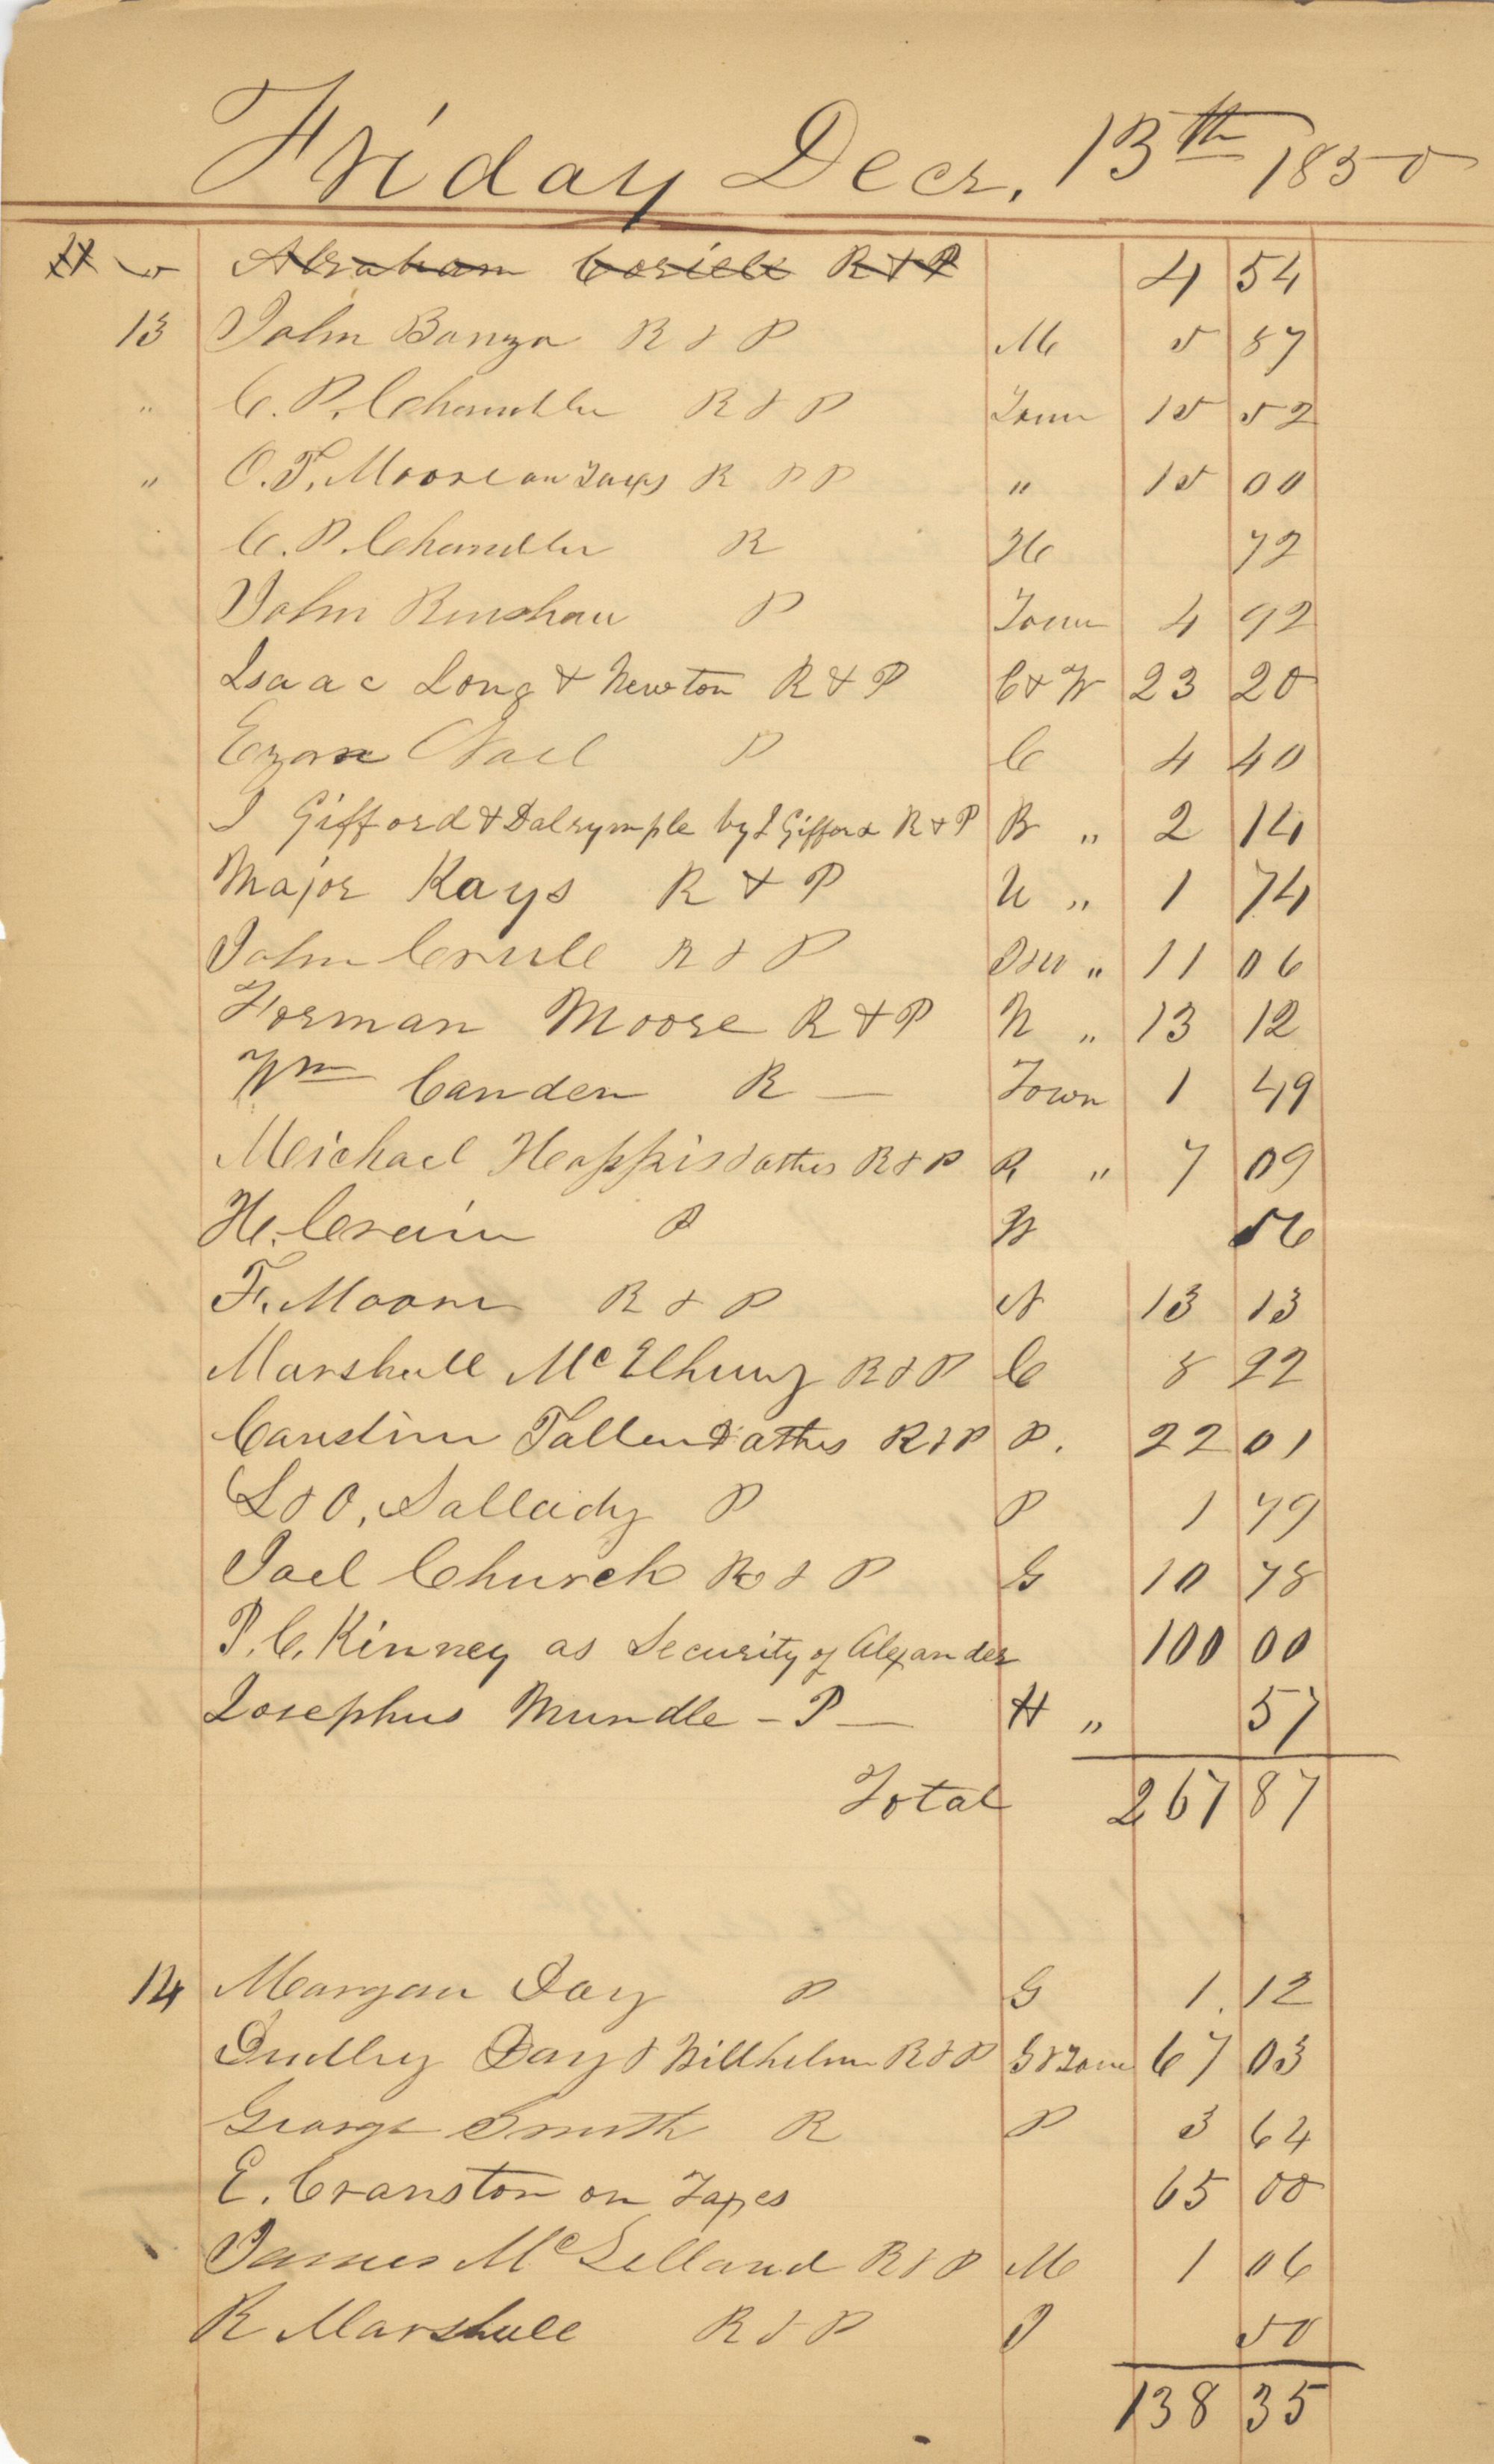 Friday Decr. 13th 1850
Abraham Coriell R & P 4 54
13 John Banzn R & P M 5 87
" C. P. Chandler R & P Town 15 52
" O. T. Moore on Taxes R & P " 15 00
C. P. Chandler R H 72
John Renshaw P Town 4 92
Isaac Long & Newton R & P C & W 23 20
Ezra Nail P C 4 40
I Gifford & Dalrymple by I Gifford R & P B " 2 14
Major Kays R & P U " 1 74
John Crull R & P " 11 06
Forman Moore R & P N " 13 12
Wm Canden R — Town 1 49
Michael Heappis & others R & P R " 7 09
H. Crain P W 56
F. Moore R & P N 13 13
Marshall McElhuny R & P C 8 22
Tallen & others R & P P. 22 01
L & O. Sallady P P 1 79
Joel Church R & P G 10 78
P. C. Kinney as Security of Alexander 100 00
Josephus Mundle – P — H " 57
Total 267 87
14 Morgan Day P G 1.12
Dudley Day & Willhelm R & P G & Town 67 03
George Smith R P 3 64
E. Cranston on Taxes 65 00
James McLelland R & P M 1 06
R Marshall R & P J 50
138 35